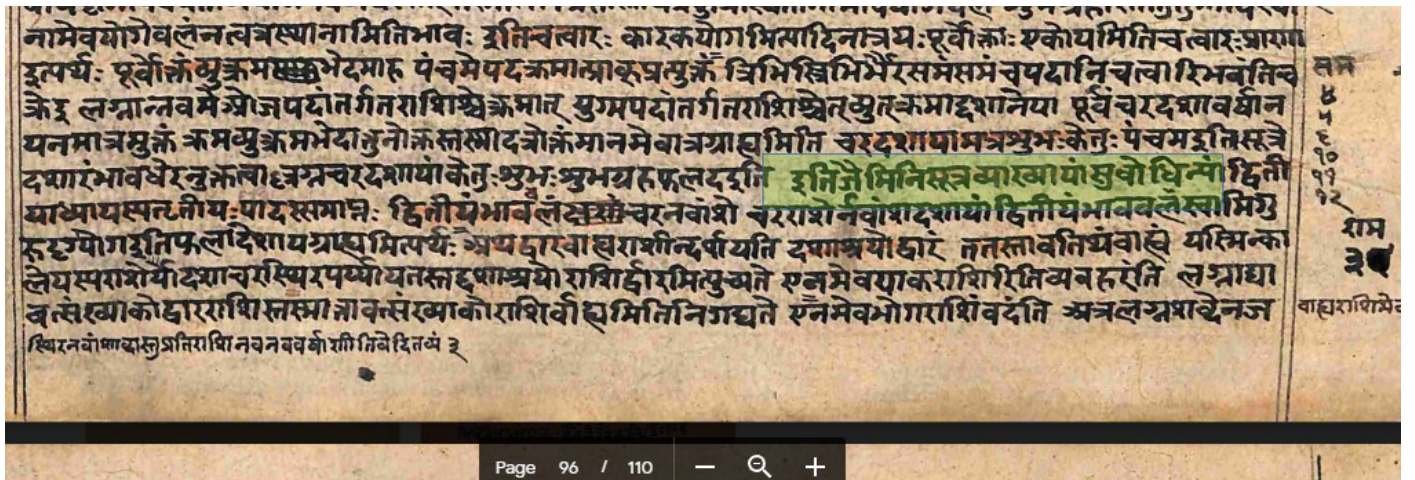 नामेवयोगेवलंनत्वत्रस्थानामितिभावः इतिचत्वारः कारकयोगमित्यादिनात्रयः पूर्वोक्ताः एकोयमितिचत्वारः प्राणा
इत्यर्थः पूर्वोक्तंव्युत्क्रम भेदमाह पंचमेपदक्रमात्प्राक्प्रत्युक्तं त्रिभिस्त्रिभिर्भैरसमंसमंचपदानिचत्वारिभवंतिच
क्रेइ लग्नान्नवमे ओजपदांतर्गतराशिश्चेत्क्रमात् युग्मपदांतर्गतराशिश्चेत्व्युत्क्रमाद्दशानेया पूर्वंचरदशावर्षान
यनमात्रमुक्तं क्रमव्युत्क्रमभेदास्तुनोक्तस्तस्मादत्रोक्तंमानमेवात्रग्राह्यमिति चरदशायामत्रशुभः केतुः पंचमइतिसूत्रे
दशारंभावधेरनुक्तत्वात् लग्नचरदशायांकेतुः शुभः शुभग्रहफलदइति इतिजैमिनिसूत्रव्याख्यायांसुबोधिन्यां द्विती
याध्यायस्यतृतीयः पादस्समाप्तः द्वितीयंभावबलं चरनवांशे चरराशेर्नवांशदशायांद्वितीयंभावबलंस्वामिगु
रुदृग्योगइतिफलादेशायग्राह्यमित्यर्थः अथद्वारबाह्यराशीन्दर्शयति दशाश्रयोद्वारं ततस्तावतिथंबाह्यं यस्मिन्का
लेयस्यराशेर्यादशाचरस्थिरपर्य्यायतस्तद्दशाश्रयोराशिर्द्वारमित्युच्यते एनमेवपाकराशिरितिव्यवहरंति लग्नाद्या
वत्संख्याकोद्वारराशिस्तस्मात्तावत्संख्याकोराशिर्बाह्यमितिनिगद्यते एनमेवभोगराशिंवदंति अत्रलग्नशब्देनज
स्थिरनवांशायास्तुप्रतिराशिनवनववर्षाणीतिवेदितव्यं ३
४
५
६
१०
११
१२
राम
३
बाह्यराशिमेव
Page 96 / 110